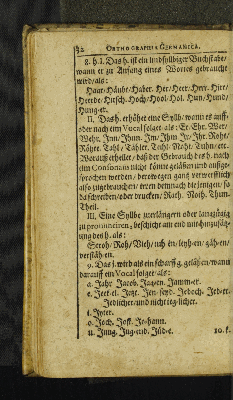 32 ORTHOGRAPHIA GERMANICA.
8. h. I. Das h. ist ein lindsylbiger Buchstabe/
wann er zu Anfang eines Wortes gebraucht
wird/als:
Haar/Häube/Haber. Her/Heer. Herr. Hirt/
Heerde/Hirsch. Hoch/Hool/Hol. Hun/Hund/
Hunger.
II. Das h. erhöhet eine Sylb/wann es auff/
oder nach ein Vocal folget. als: Er/Ehr. Wer/
Wehr. Inn/Ihnn. Im/Ihm In/Ihr. Roht/
Röhte. Tahl/Tähler. Tuhl. Noht. Tuhn/etc.
Worauß erhellet/daß der Gebrauch des h. nach
ein Consonans nicht könne geläsen und außge-
sprochen werden/derowegen ganz verwerfflich
also zugebrauchen/irren demnach diejenigen/so
da schreiben/oder drucken/Rath. Noth. Thum.
Theil.
III. Eine Sylbe zuerlängern oder langzügig
zu pronunciren/beschicht am end mit hinzusäz-
ung des h. als:
Stroh/Roh/Vieh/ich en/teyh-en/gäh-en/
verstäh-en.
9. Das j. wird als ein scharff g. geläsen/wann
darauff ein Vocal folget/als:
a. Jahr Jacob. Jag-en. Jamm-er.
e. Jeet-el. Jetz. Jen-seyd. Jedoch. Jed-er.
Jedlicher/und nicht ieglicher.
i. Jyter.
o. Joch. Jost. Jo-hann.
u. Jung. Jug-end. Jüd-e.
10. k.